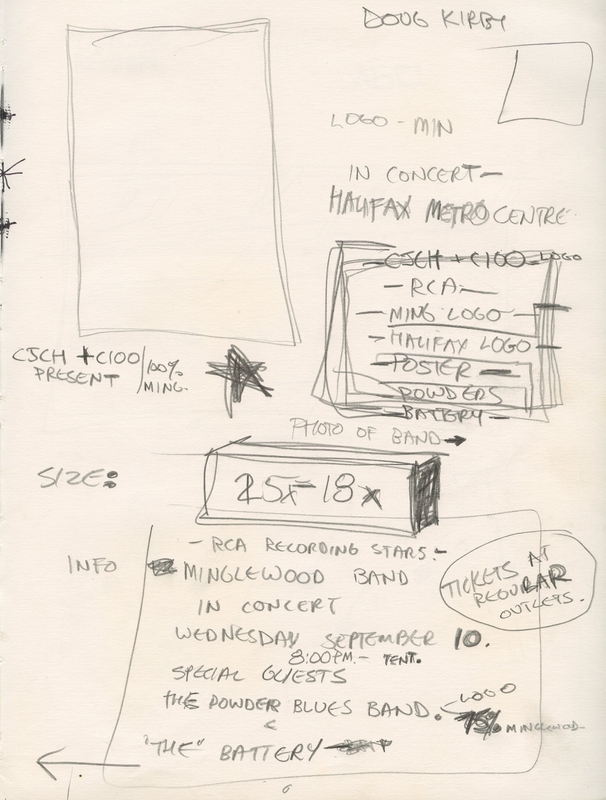 DOUG KIRBY
LOGO - MIN
IN CONCERT -
HALIFAX METRO CENTRE
- CJCH + C100 - LOGO
- RCA -
- MING LOGO -
- HALIFAX LOGO -
- POSTER -
- POWDERS
- BATTERY -
CJCH + C100/100%
PRESENT MING.
PHOTO OF BAND
SIZE:
25x-18x
INFO
- RCA RECORDING STARS. -
MINGLEWOOD BAND
IN CONCERT
WEDNESDAY SEPTEMBER 10.
8:00 P.M. - TENT.
SPECIAL GUESTS
THE POWDER BLUES BAND. - LOGO
75% MINGLEWOD-
"THE" BATTERY
TICKETS AT
REGULAR
OUTLETS.
6